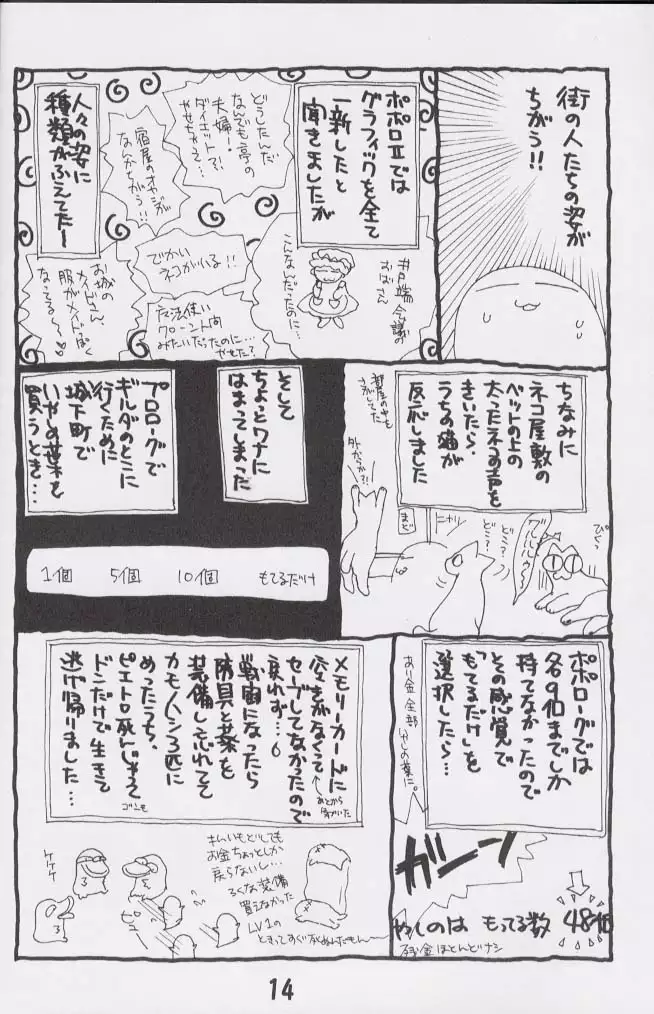 街の人たちの姿が
ちがう!!
ポポロⅡでは
グラフィックを全て
一新したと
聞きましたが
井戸端会議の
おばさん
こんなんだったのに…
どうしたんだ
なんでも亭の
夫婦!
ダイエット?!
やせちゃって…
宿屋のオヤジが
なんかちがう!!
でかい
ネコがいる!!
人々の姿に
種類がふえてたー
お城の
メイドさん、
服がメイドっぽく
なってる〜
みたいだったのに…
やせた?
ちなみに
ネコ屋敷の
ベットの上の
太ったネコの声を
きいたら、
うちの猫が
反応しました
部屋の中も
さがしてた
外からか?!
まど
どこ?
どこ?
ピクッ
そして
ちょっとワナに
はまってしまった
プロローグで
ギルダのとこに
行くために
城下町で
いやしの葉を
買うとき…
1個 5個 10個 もてるだけ
ポポローグでは
各9個までしか
持てなかったので
その感覚で
「もてるだけ」を
選択したら…
あり金全部いやしの葉に。
ガーン
やしのは もってる数 48個
残金ほとんどナシ
メモリーカードに
空きがなくて
セーブしてなかったので
戻れず…
あとから
気がついた
戦闘になったら
防具と葉を
装備し忘れてて
カモノハシ3匹に
めったうち、
ピエトロ死んじゃって
ドンだけで生きて
逃げ帰りました…
ゴンも
ケケケ
ピュー
もどしても
お金ちょっとしか
戻らないし…
ろくな装備
買えなかった
LV1の
14